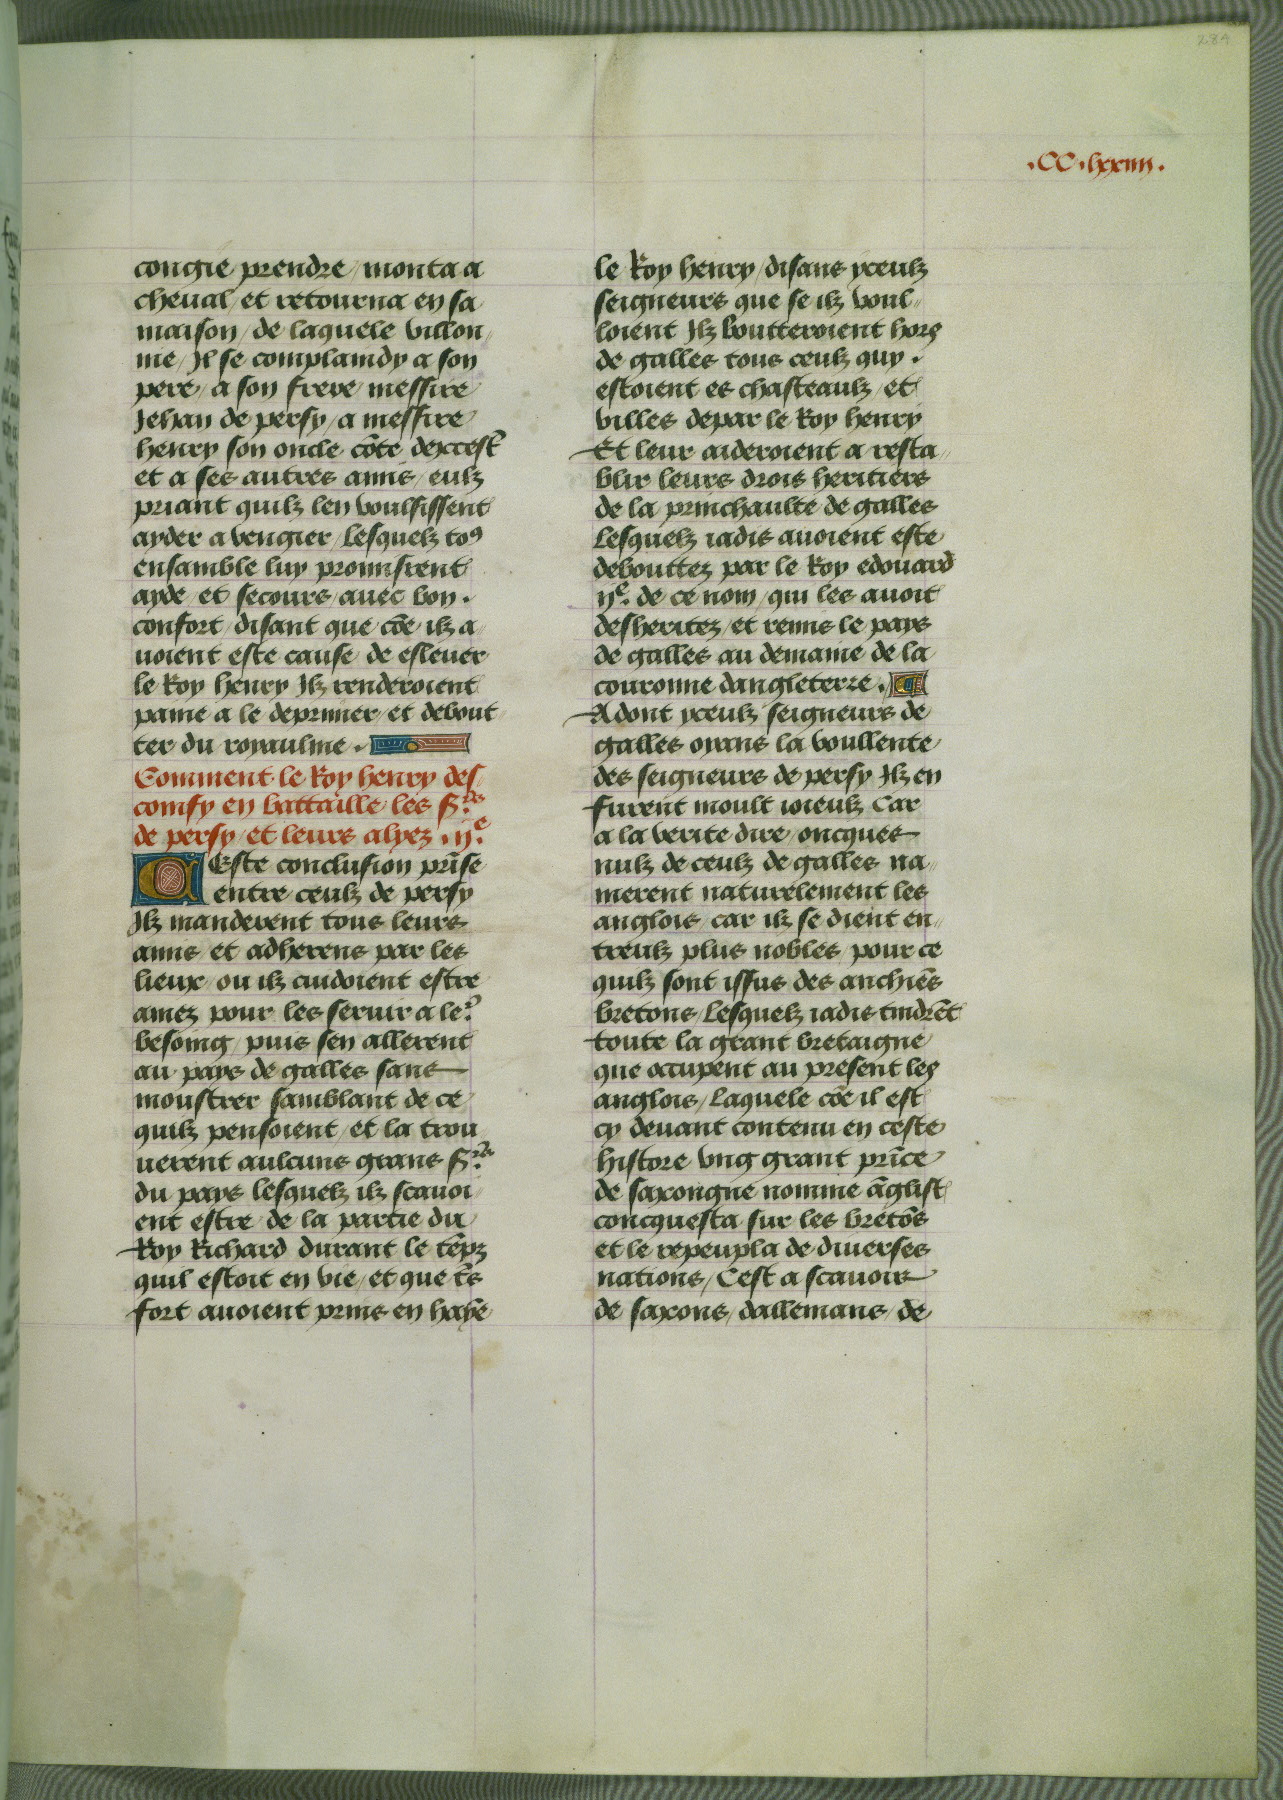 284
.CC.lxxiiii.
congie prendre / monta a
cheual / et retourna en sa
maison / de laquele villon-
nie / Il se complaindy a son
pere / a son frere messire
Jehan de persy / a messire
henry son oncle cōte dexcestr̄
et a ses autres amis / eulz
priant quilz len voulsissent
ayder a vengier / Lesquelz toꝰ
ensamble luy promisrent
ayde et secours / auec bon .
confort / disant que cōe ilz a-
uoient este cause de esleuer
le Roy henry Ilz renderoient
paine a le deprimer / et debout-
ter du royaulme .
Comment le Roy henry des-
comfy en battaille les Srs
de persy / et leurs alyez . ije
Ceste conclusion prīse
entre ceulz de persy
Ilz manderent tous leurs
amis et adherens par les
lieux / ou ilz cuidoient estre
amez pour les seruir a leꝰ
besoing / puis sen allerent
au pays de galles sans
moustrer samblant de ce
quilz pensoient / et la trou-
uerent aulcuns grans Srs
du pays lesquelz ilz scauoi-
ent estre de la partie du
Roy Richard durant le tēpz
quil estoit en vie / et que t̄s
fort auoient prins en hayē
le Roy henry / disans yceulz
seigneurs que se ilz voul-
loient Ilz boutteroient hors
de galles tous ceulz quy .
estoient es chasteaulz / et
villes depar le Roy henry
Et leur aideroient a resta-
blir leurs drois heritiers
de la princhaulte de galles
Lesquelz iadis auoient este
debouttez par le Roy edouard
ije. de ce nom / qui les auoit
desheritez / et remis le pays
de galles au demaine de la
couronne dangleterre .
Adont yceulz seigneurs de
galles oyans la voullente
des seigneurs de persy Ilz en
furent moult ioieulz Car
a la verite dire / oncques
nulz de ceulz de galles na-
merent naturelement les
anglois / car ilz se dient en-
treulz plus nobles / pour ce
quilz sont issus des anchiēs
bretons / Lesquelz iadis tindrēt
toute la grant bretaigne
que occupent au present les
anglois / Laquele cōe il est
cy deuant contenu en ceste
histore vng grant prīce
de saxongne nomme āglist
concquesta sur les bretōs
et le repeupla de diuerses
nations / Cest a scauoir
de saxons / dallemans / de